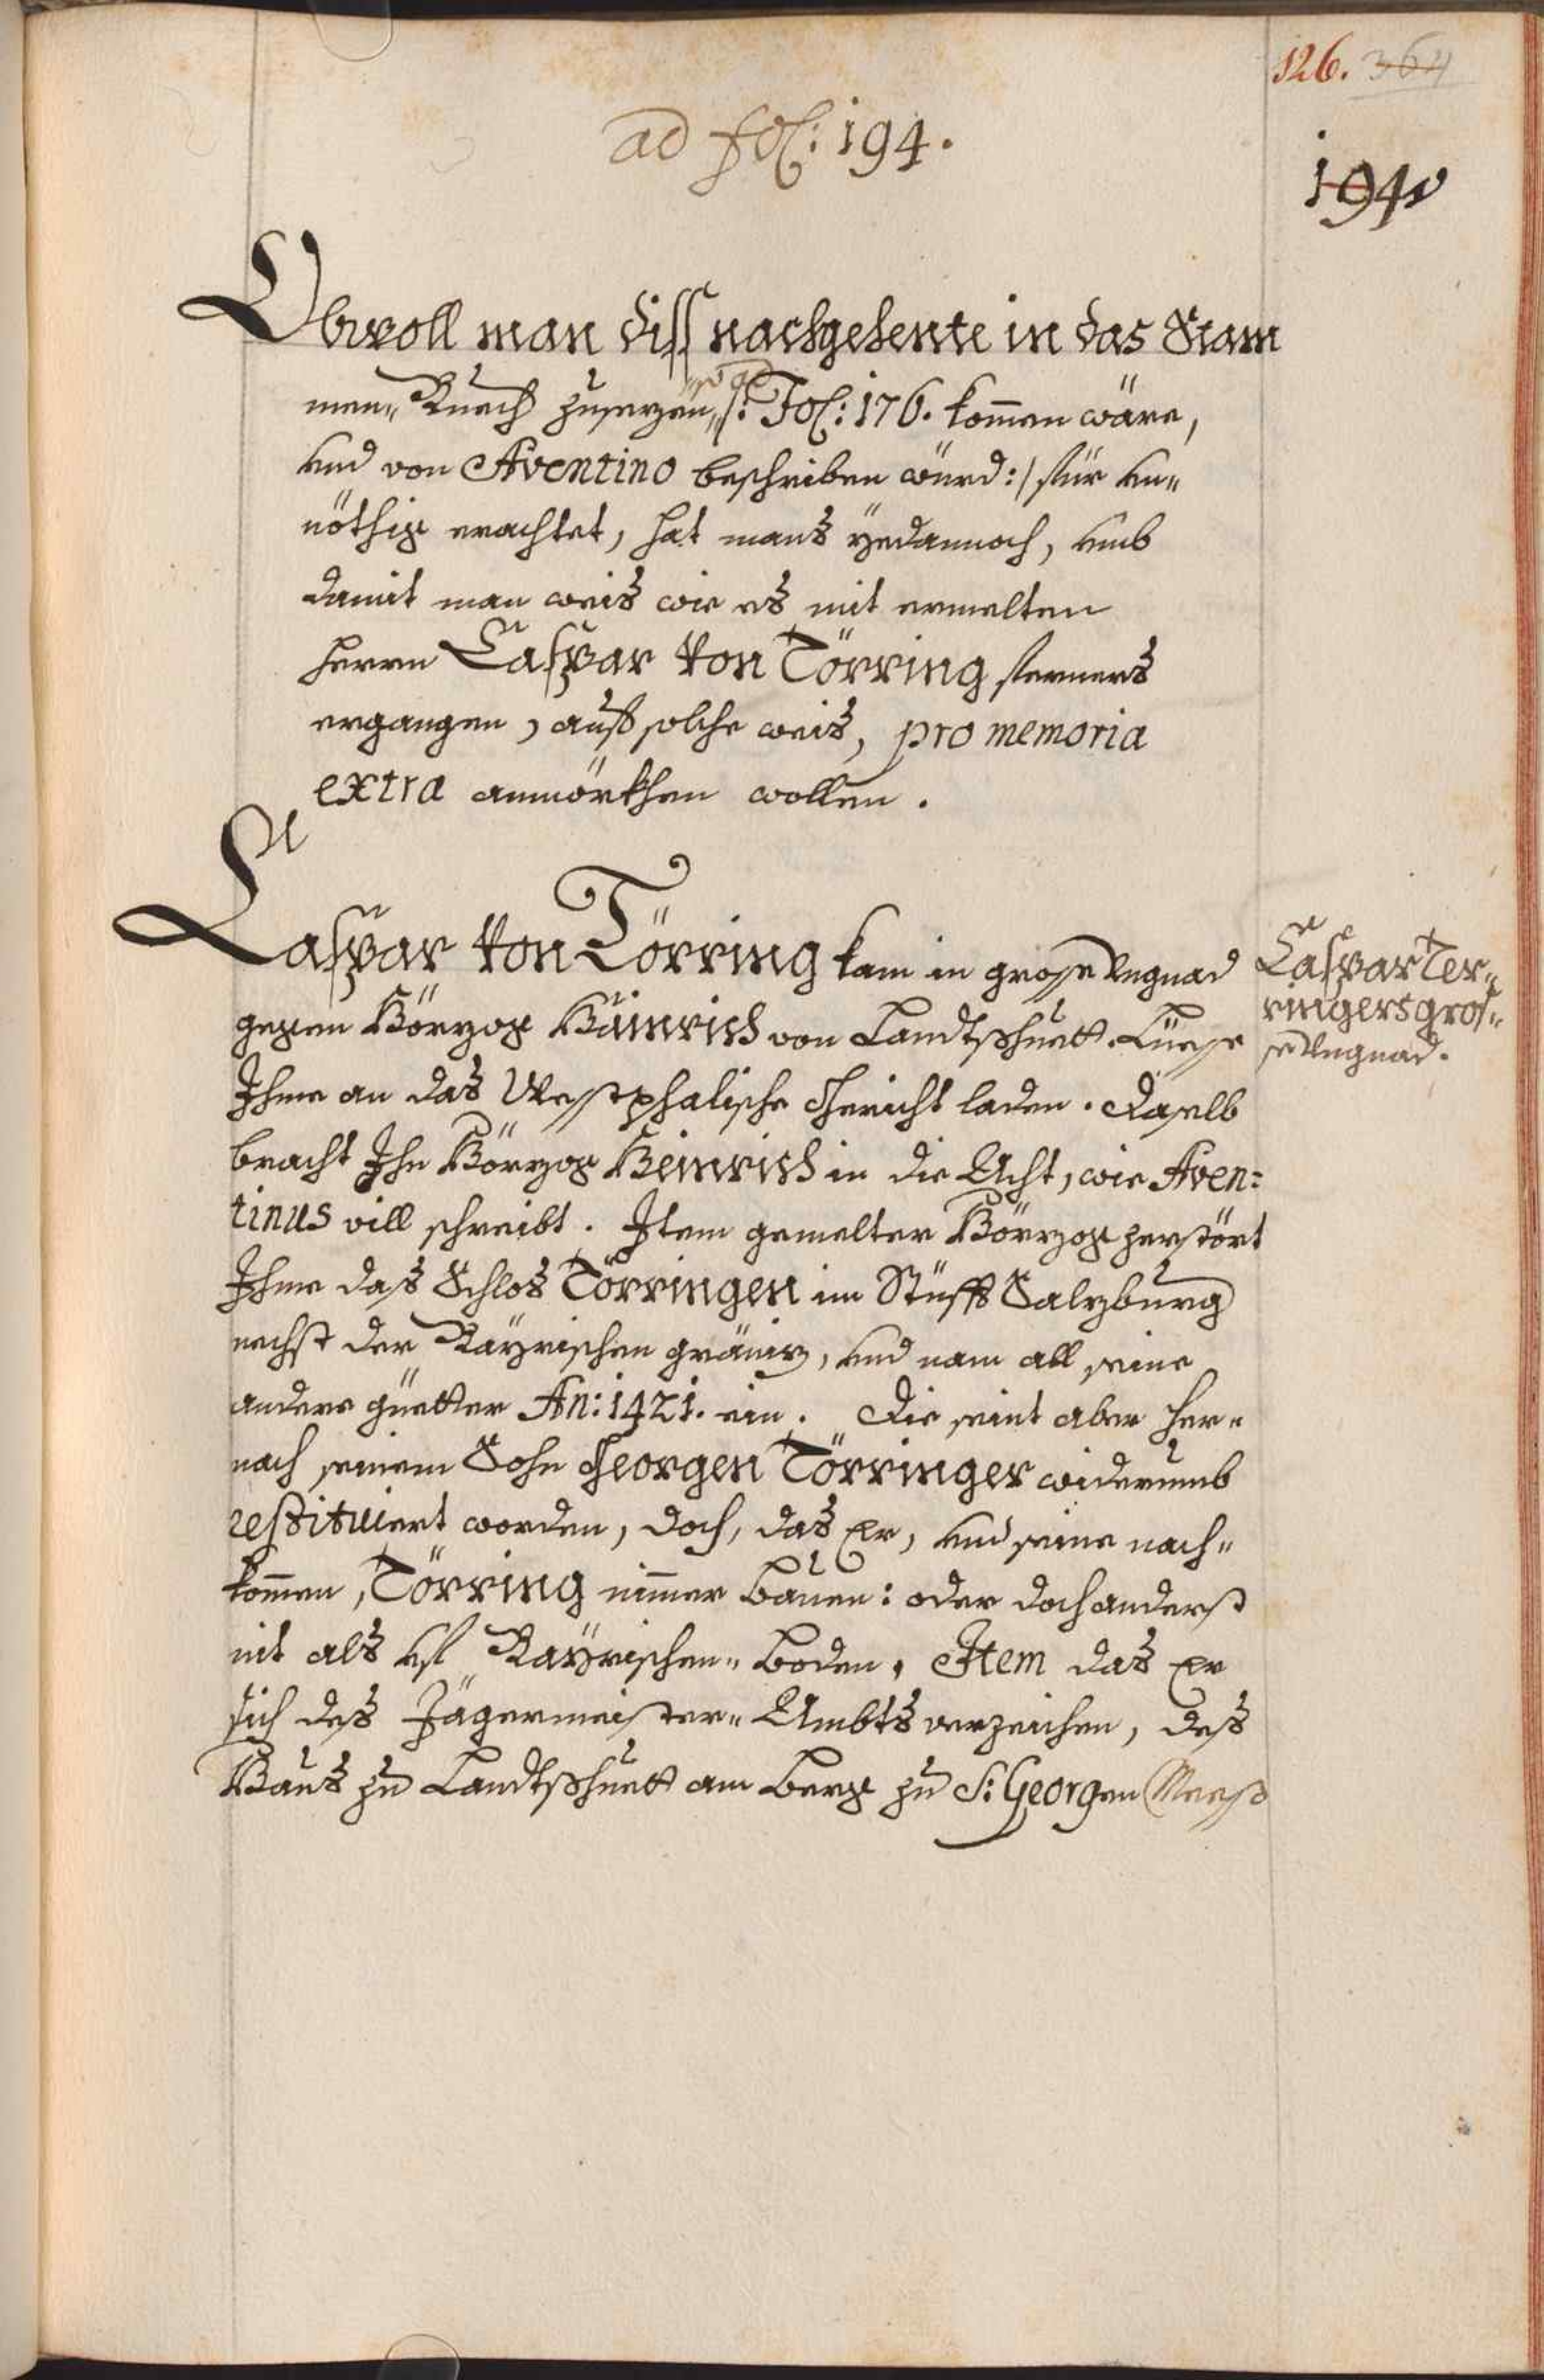 126. 364
ad fol: 194.
194
Obwoll man diss nachgehente in das Stam
men„ Buech zusezen, so ad /: Fol: 176. kommen wäre,
und von Aventino beschriben würd :/ für un„
nöthig erachtet, hat mans yedannoch, umb
damit man weis wie es mit ermelten
Herrn Caspar von Törring ferners
ergangen, auf solche weis, pro memoria
extra anmörkhen wollen.
Caspar von Törring kam in grosse Ungnad
gegen Hörzog Häinrich von Landtshuett. Liesse
Ihme an das Westphalische Gericht laden. Daselb
bracht Ihn Hörzog Heinrich in die Acht, wie Aven=
tinus vill schreibt. Item gemelter Hörzog zerstört
Ihme das Schlos Törringen im Stüfft Salzburg
nechst der Bayrischen gräniz, und nam all seine
andere güetter An: 1421. ein. Die seint aber her„
nach seinem Sohn Georgen Törringer widerumb
restituiert worden, doch, das Er, und seine nach„
kommen, Törring nimmer bauen: oder doch anderst
nit als uf Bayrischen„ boden. Item das Er
sich des Jägermeister„ Ambts verzeichen, des
Haus zu Landtshuett am berg zu S: Georgen Mess
Caspar Ter„
ringers gros„
se Ungnad.